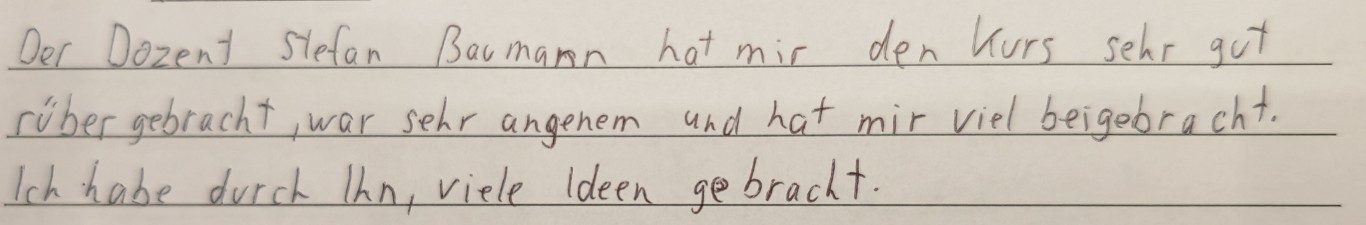 Der Dozent Stefan Baumann hat mir den Kurs sehr gut
rüber gebracht, war sehr angenem und hat mir viel beigebracht.
Ich habe durch Ihn, viele Ideen gebracht.